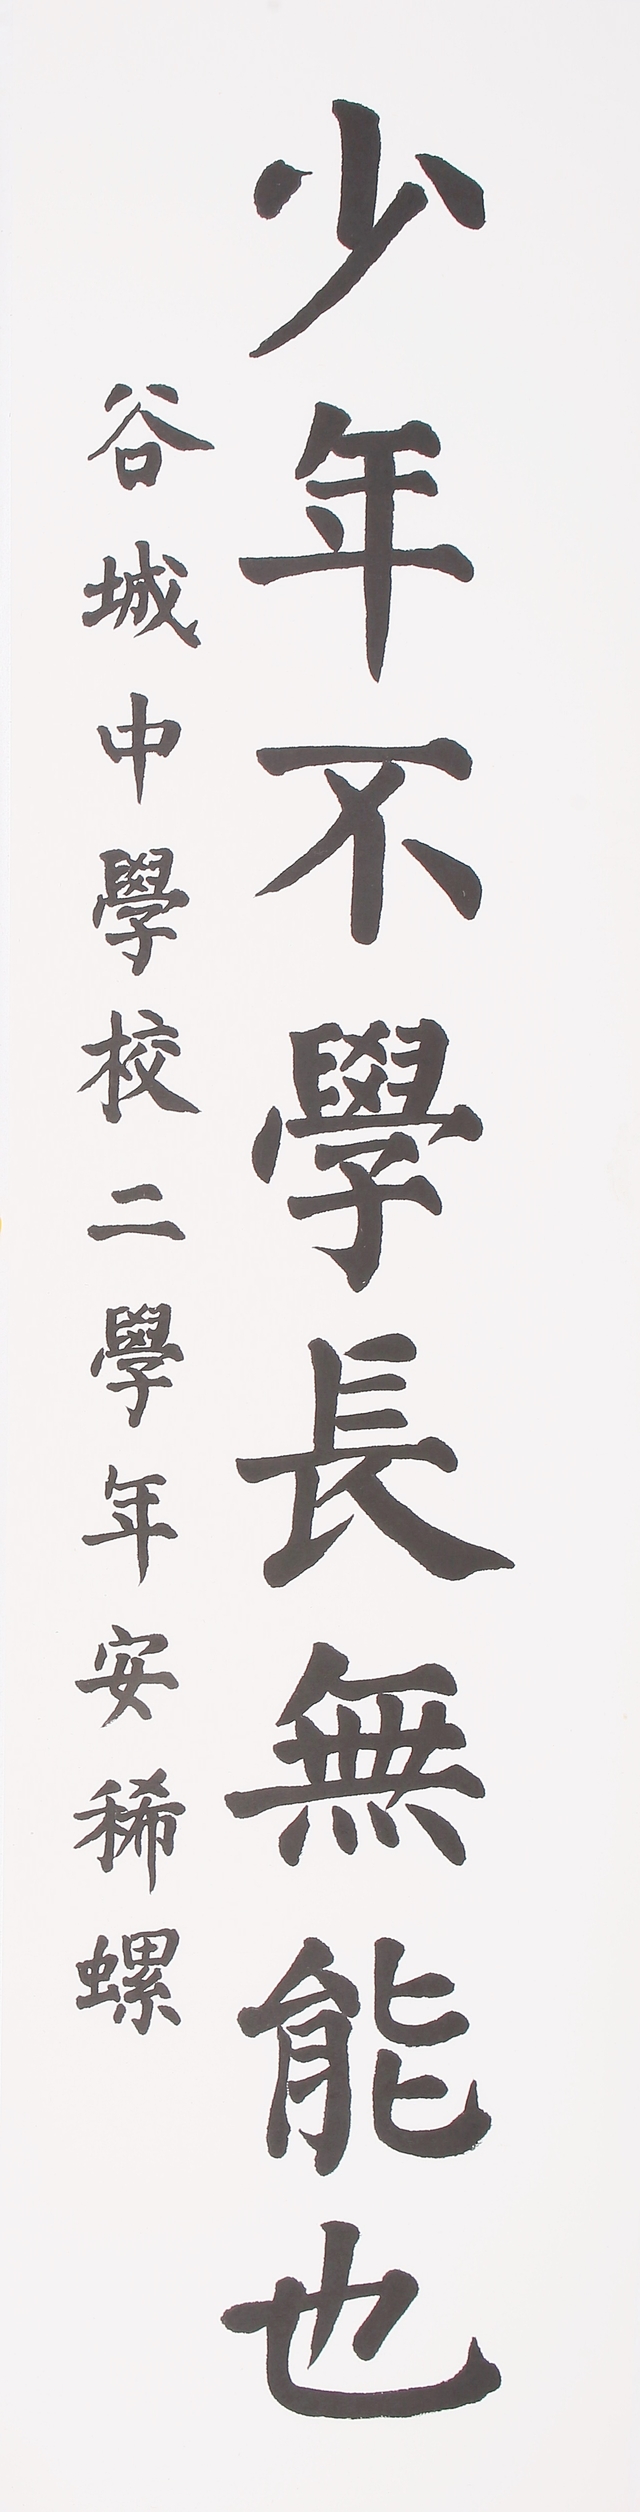 少年不學長無能也
谷城中學校二學年安稀螺